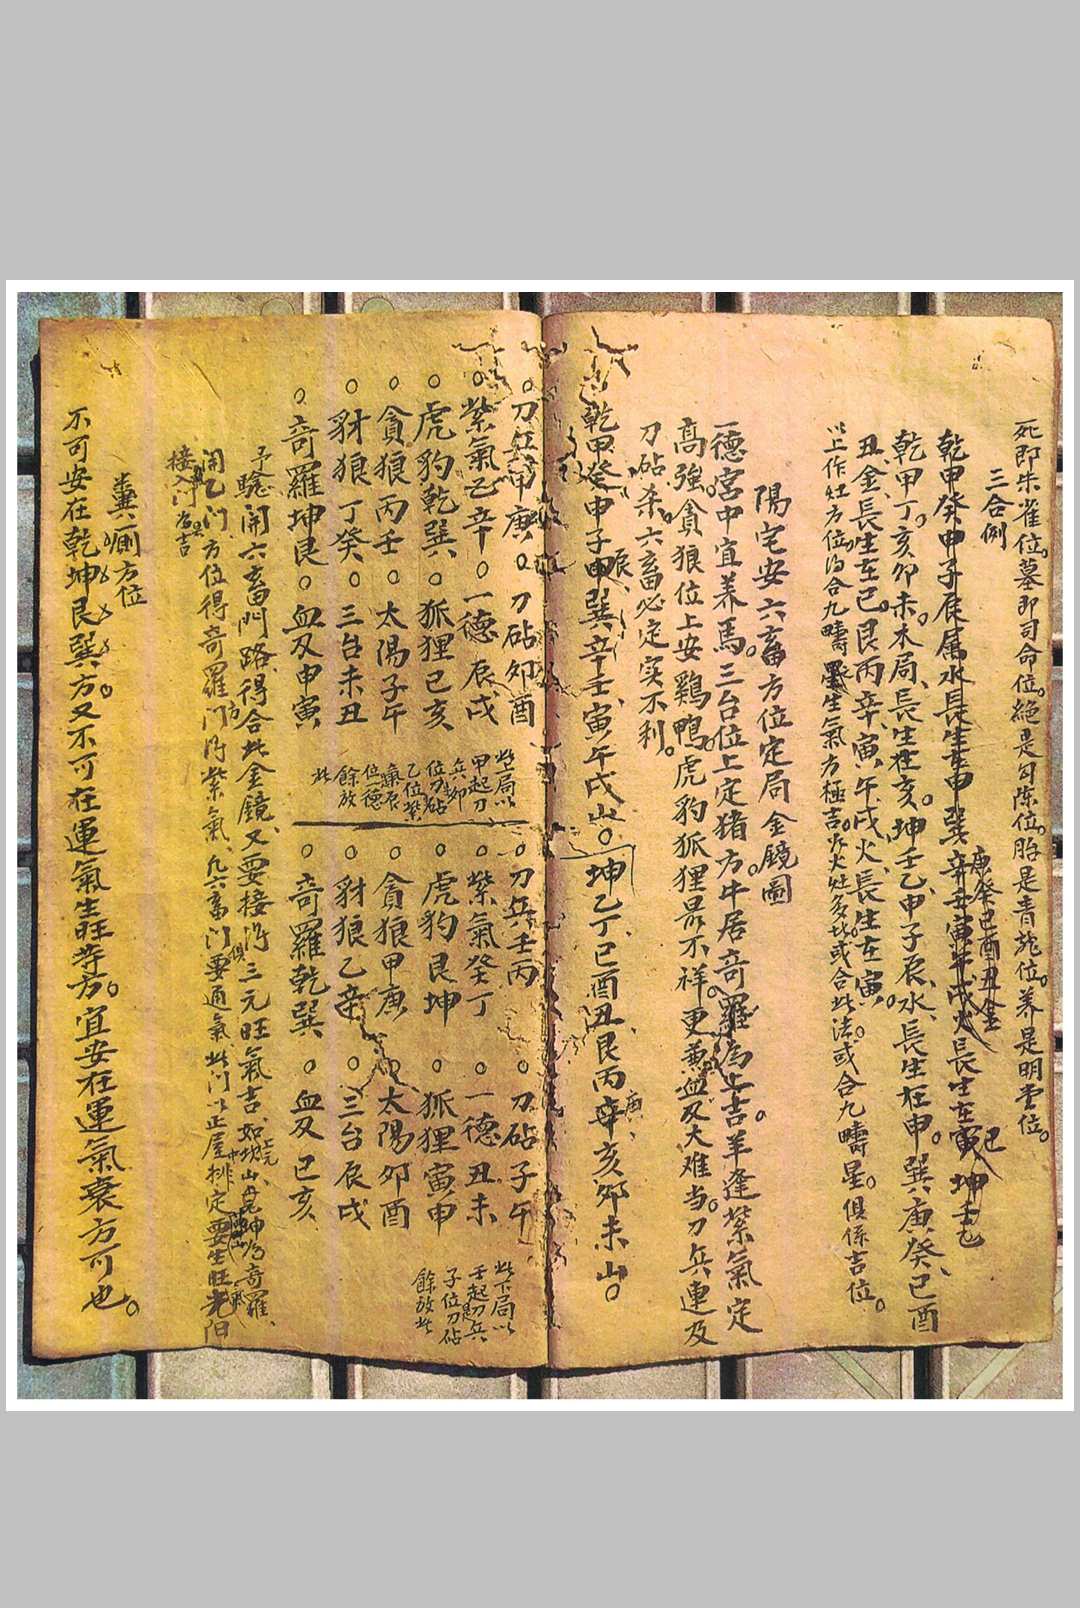 死即朱雀位。墓即司命位。絕是勾陳位。胎是青龍位。養是明堂位。
三合例
庚癸巳酉丑金
乾甲癸申子辰属水長生在申巽辛壬寅午戌火長生在寅 坤壬乙
巳
乾甲丁亥卯未木局、長生在亥。坤壬乙、申子辰、水、長生在申。巽庚癸、巳酉
丑、金、長生在巳。艮丙辛、寅、午戌、火、長生在寅。
以上作灶方位。
陽宅安六畜方位定局金鏡圖
一德宮中宜养馬。三台位上定猪方。牛居奇羅為上吉。羊逢紫氣定
高強。貪狼位上安鷄鴨。虎豹狐狸最不祥。更兼血刃大难当。刀兵連及
刀砧杀。六畜必定实不利。
乾甲癸申子辰、巽辛壬、寅午戌山。坤乙丁巳酉丑艮丙辛亥卯未山。
辰
庚
刀兵甲庚 刀砧卯酉
紫氣乙辛 一德辰戌
虎豹乾巽 狐狸巳亥
貪狼丙壬 太陽子午
豺狼丁癸 三台未丑
奇羅坤艮 血刃申寅
此上局以
甲起刀
兵卯
位刀砧
乙位紫
氣辰
位一德
餘放
此
刀兵壬丙 刀砧子午
紫氣癸丁 一德丑未
虎豹艮坤 狐狸寅申
貪狼甲庚 太陽卯酉
豺狼乙辛 三台辰戌
奇羅乾巽 血刃巳亥
此下局以
壬起刀兵
子位刀砧
餘放此
開六畜門路、得合此金鏡、又要接得三元旺氣吉、如坎山
開乙门、方位得奇羅门得紫氣、凡六畜门、要通氣此门以正屋排定要生旺
接入门為吉
糞廁方位
不可安在乾坤艮巽方。又不可在運氣生旺等方。宜安在運氣衰方可也。